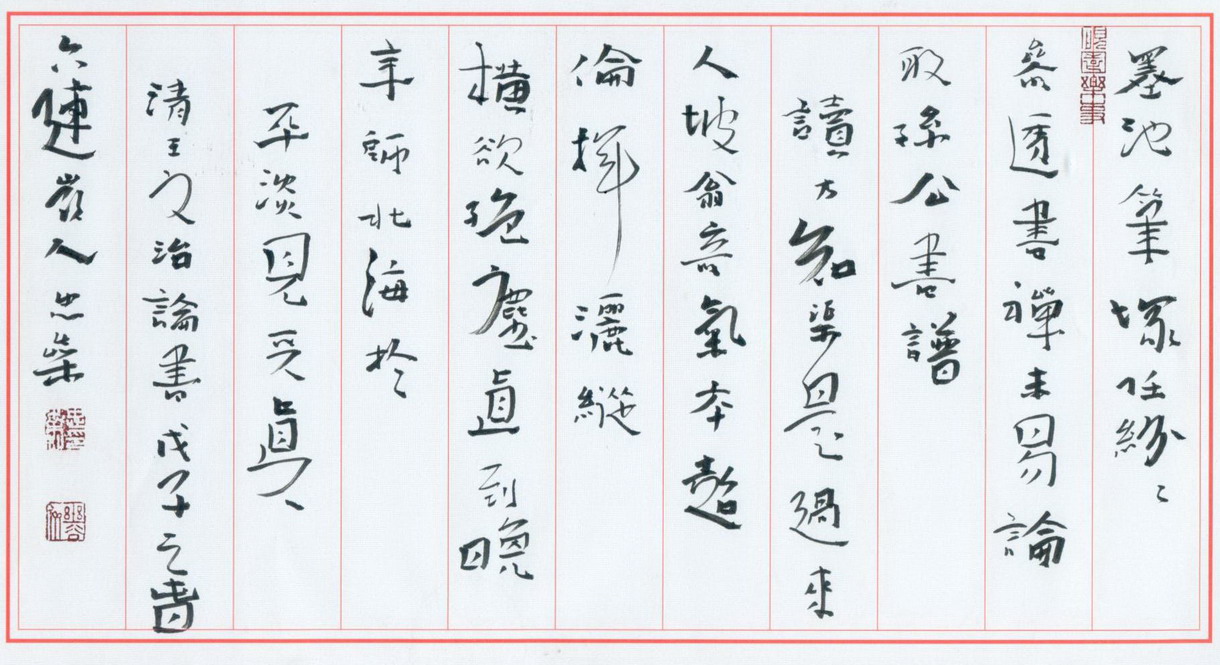 墨池筆塚任紛々
參透書禪未易論
取孫公書譜
讀方知渠是過來
人坡翁奇氣本超
倫揮灑縱
橫欲絕塵直到晚
年師北海於
平淡見天真
清王文治論書戊子之春
六連嶺人忠